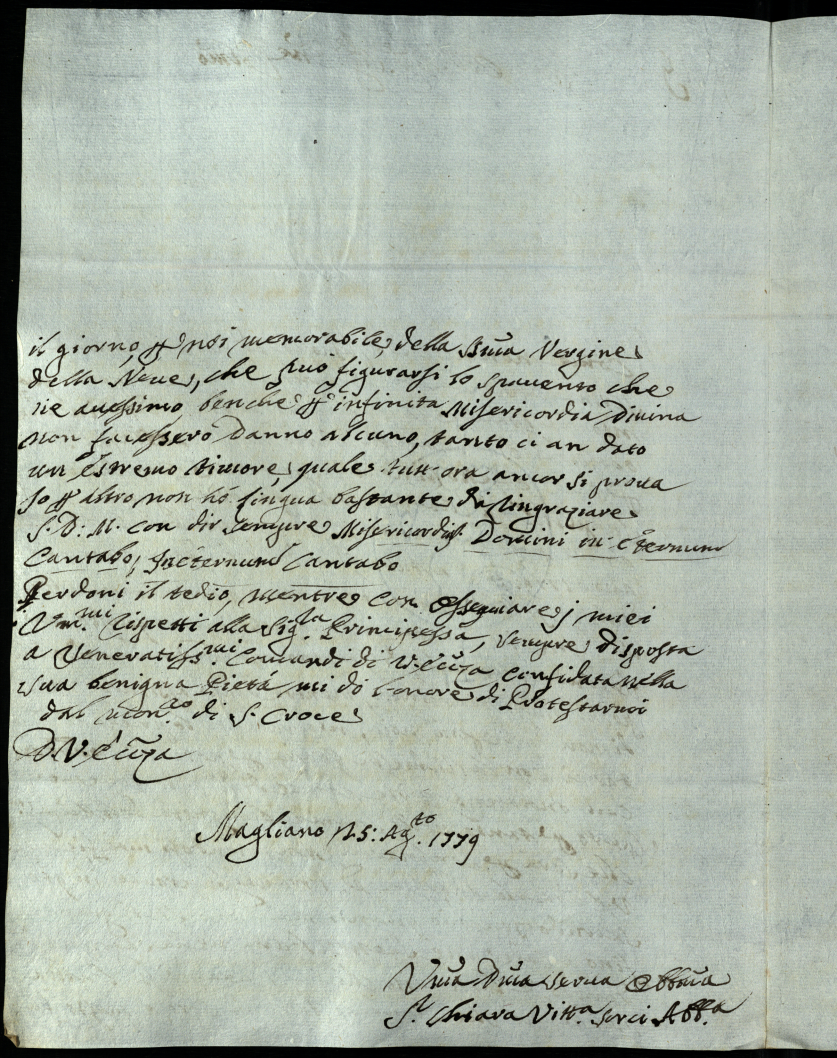 il giorno, p noi memorabile, della Sma Vergine
della Neve, che può figurarsi lo spavento che
ne avessimo, benche p infinita Misericordia Divina
non facessero Danno alcuno, tanto ci an dato
un estremo timore, quale tutt'ora ancor si prova
Io p altro non hò lingua bastante di ringraziare
S. D: M. con dir sempre Misericordias Domini in eternum
Cantabo, In eternum Cantabo
Perdoni il tedio, mentre con ossequiare j miei
Um.mi rispetti alla Sig.ra Principessa, sempre disposta
a Veneratiss.mi Comandi di V. Ecc̃za confidata nella
sua benigna Pietà mi do l'onore di Protestarmi
dal mon.ro di S. Croce
D. V. Ecc̃za
Magliano 25: Ag.to 1779
Uma Dma serva Obbma
Sr. Chiara Vitt.a Abb.a